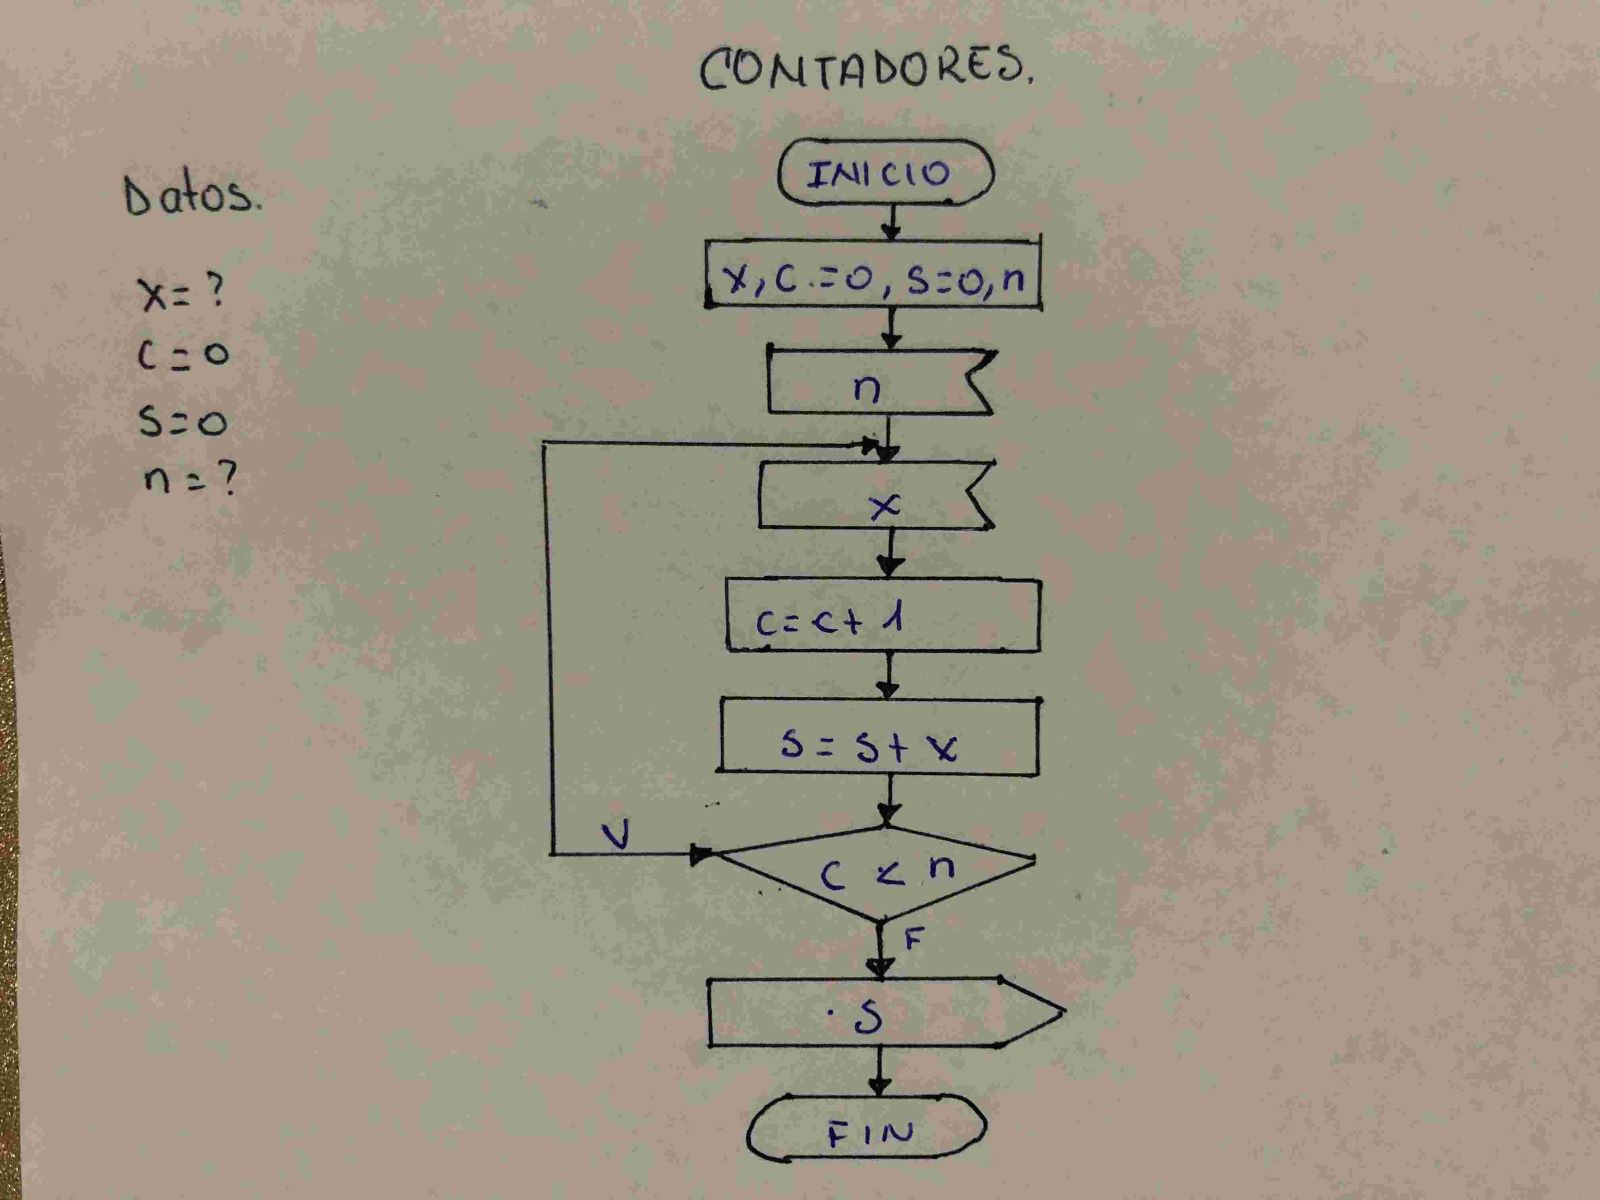 CONTADORES.
Datos.
x=?
c=0
s=0
n=?
INICIO
x, c.=0, s=0, n
n
x
c=c+1
s=s+x
V
c<n
F
.S
FIN